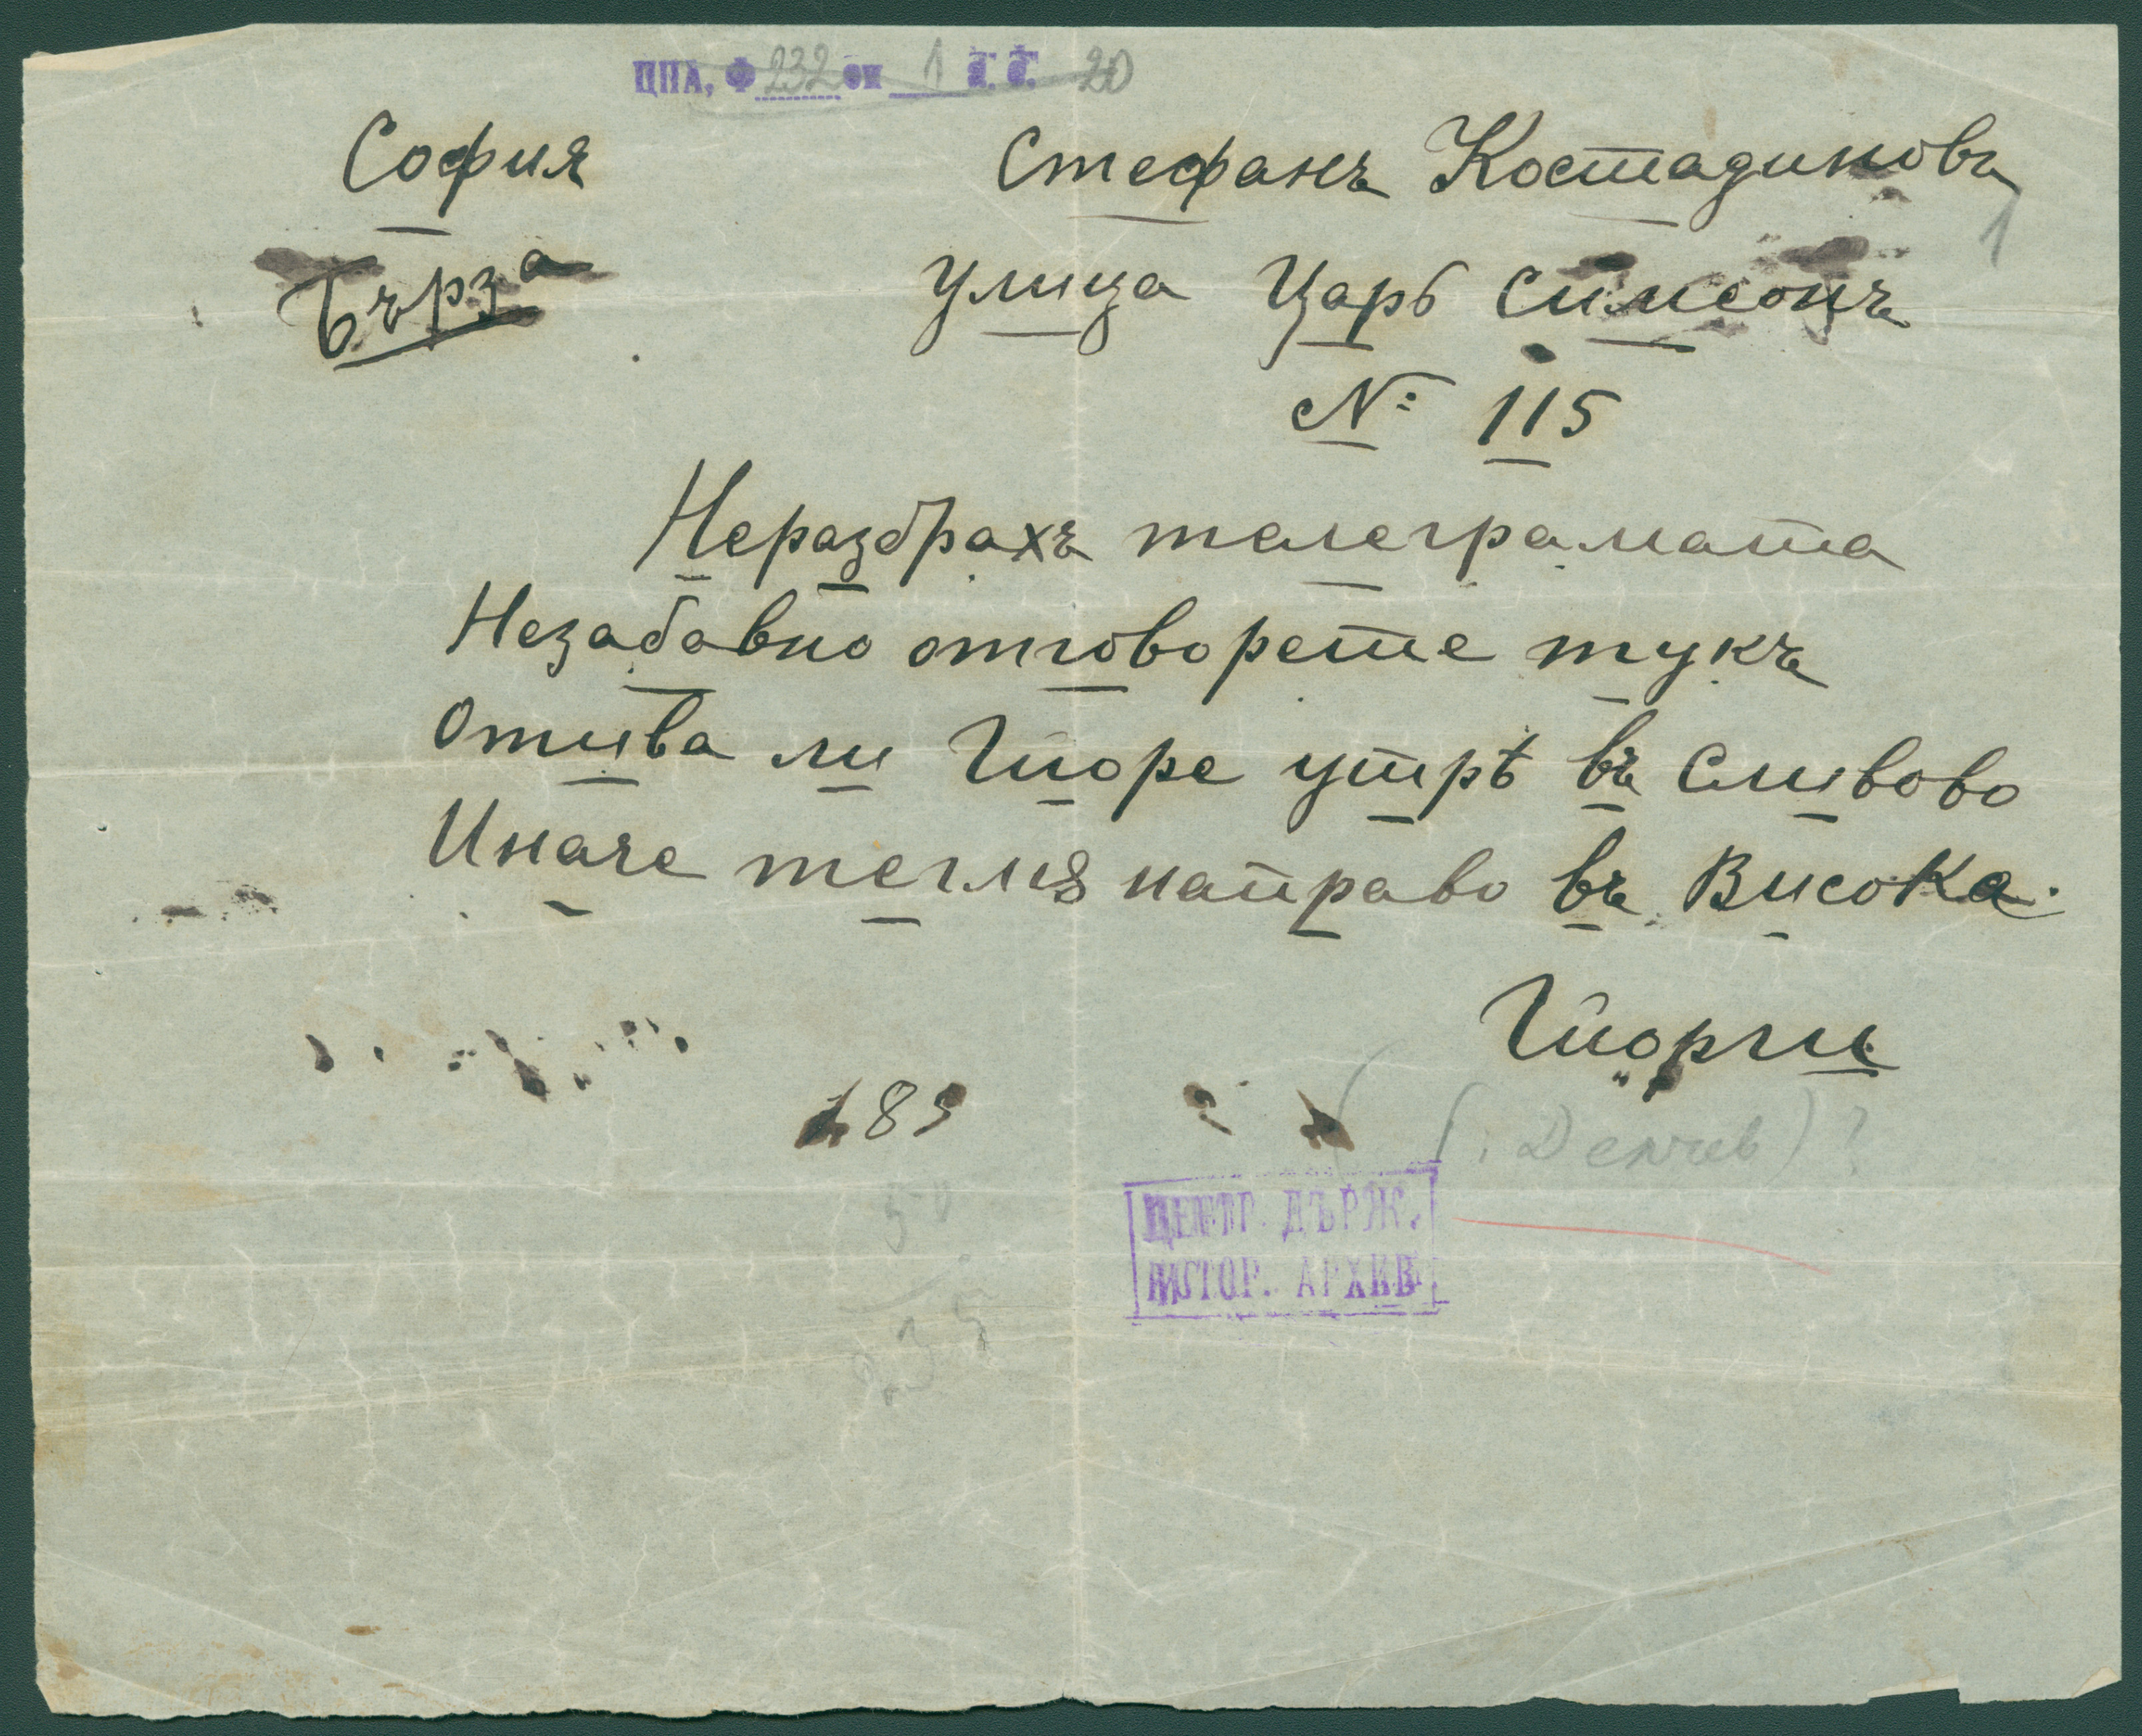 ЦПА, Ф 232 оп 1 а. е. 20
София Стефанъ Костадиновъ
1
Бърза улица Царь Симеонъ
№ 115
Неразбрахъ телеграмата
Незабавно отговорете тукъ
Отива ли Гьоре утрѣ въ Сливово
Иначе тегля направо въ Висока.
Гьорги
189
(Г. Делчев)?
50
235
ЦЕНТР. ДЪРЖ.
ИСТОР. АРХИВ